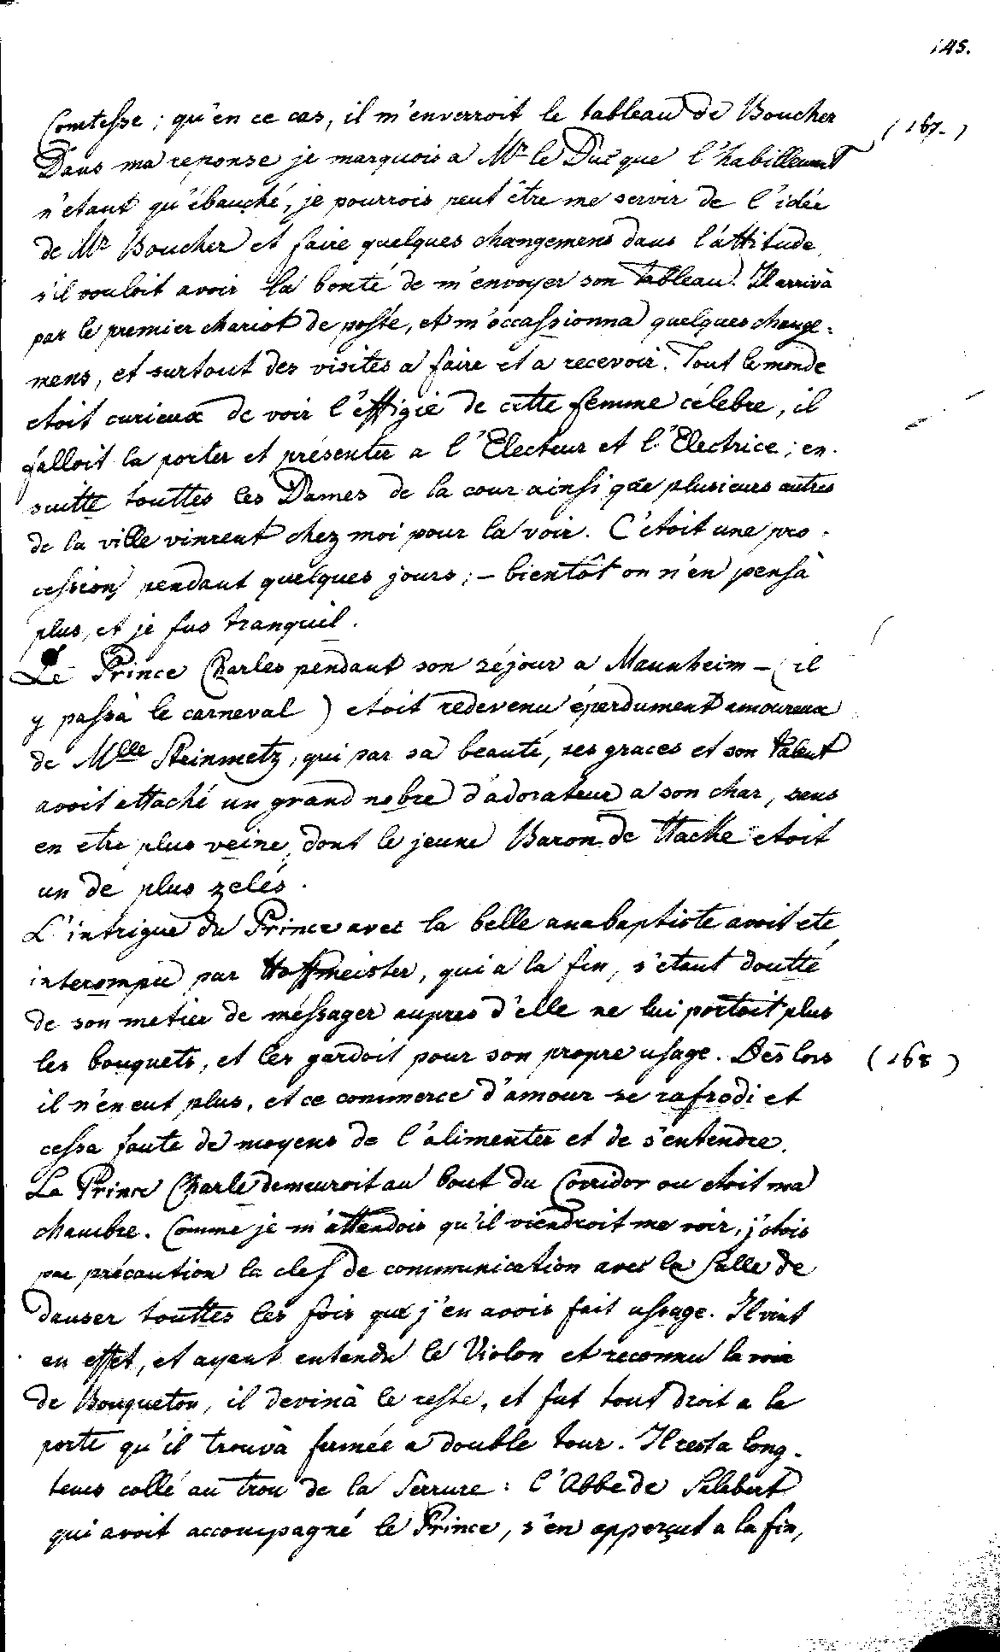 145.
Comtesse; qu'en ce cas, il m'enverroit le tableau de Boucher
(167.)
Dans ma reponse je marquois a Mr le Duc que l'habillement
n'etant qu'ébauché, je pourrois peut être me servir de l'idée
de Mr Boucher et faire quelques changemens dans l'attitude,
s'il vouloit avoir la bonté de m'envoyer son Tableau. Il arrivà
par le premier chariot de poste, et m'occassionna quelques change=
mens, et surtout des visites a faire et a recevoir. Tout le monde
etoit curieux de voir l'effigie de cette femme célebre, il
falloit la porter et présenter a l'Electeur et l'Electrice; en-
suitte touttes les Dames de la cour ainsi que plusieurs autres
de la ville vinrent chez moi pour la voir. C'étoit une pro-
cession pendant quelques jours; – bientôt on n'en pensà
plus, et je fus tranquil.
Le Prince Charles pendant son séjour a Mannheim – (il
y passà le carneval) etoit redevenu éperdument amoureux
de Mlle Steinmetz, qui par sa beauté, ses graces et son talent
avoit attaché un grand nobre d'adorateur a son char, sans
en etre plus veine, dont le jeune Baron de Hacke etoit
un de plus zelés.
L'intrigue du Prince avec la belle anabaptiste avoit eté
interompu par Hoffmeister, qui a la fin, s'etant doutté
de son metier de méssager aupres d'elle ne lui portoit plus
les bouquets, et les gardoit pour son propre usage. Dès lors
(168)
il n'en eut plus, et ce commerce d'amour se rafrodi et
cessa faute de moyens de l'alimenter et de s'entendre.
Le Prince Charle demeuroit au bout du Corridor ou etoit ma
chambre. Comme je m'attendois qu'il viendroit me voir, j'otois
par précaution la clef de communication avec la Salle de
danser touttes les fois que j'en avois fait ussage. Il vint
en effet, et ayant entendu le Violon et reconnu la voix
de Bouqueton, il devinà le reste, et fut tout droit a la
porte qu'il trouvà fermée a double tour. Il resta long-
tems collé au trou de la Serrure: l'Abbé de Salabert
qui avoit accompagné le Prince, s'en apperçut a la fin,